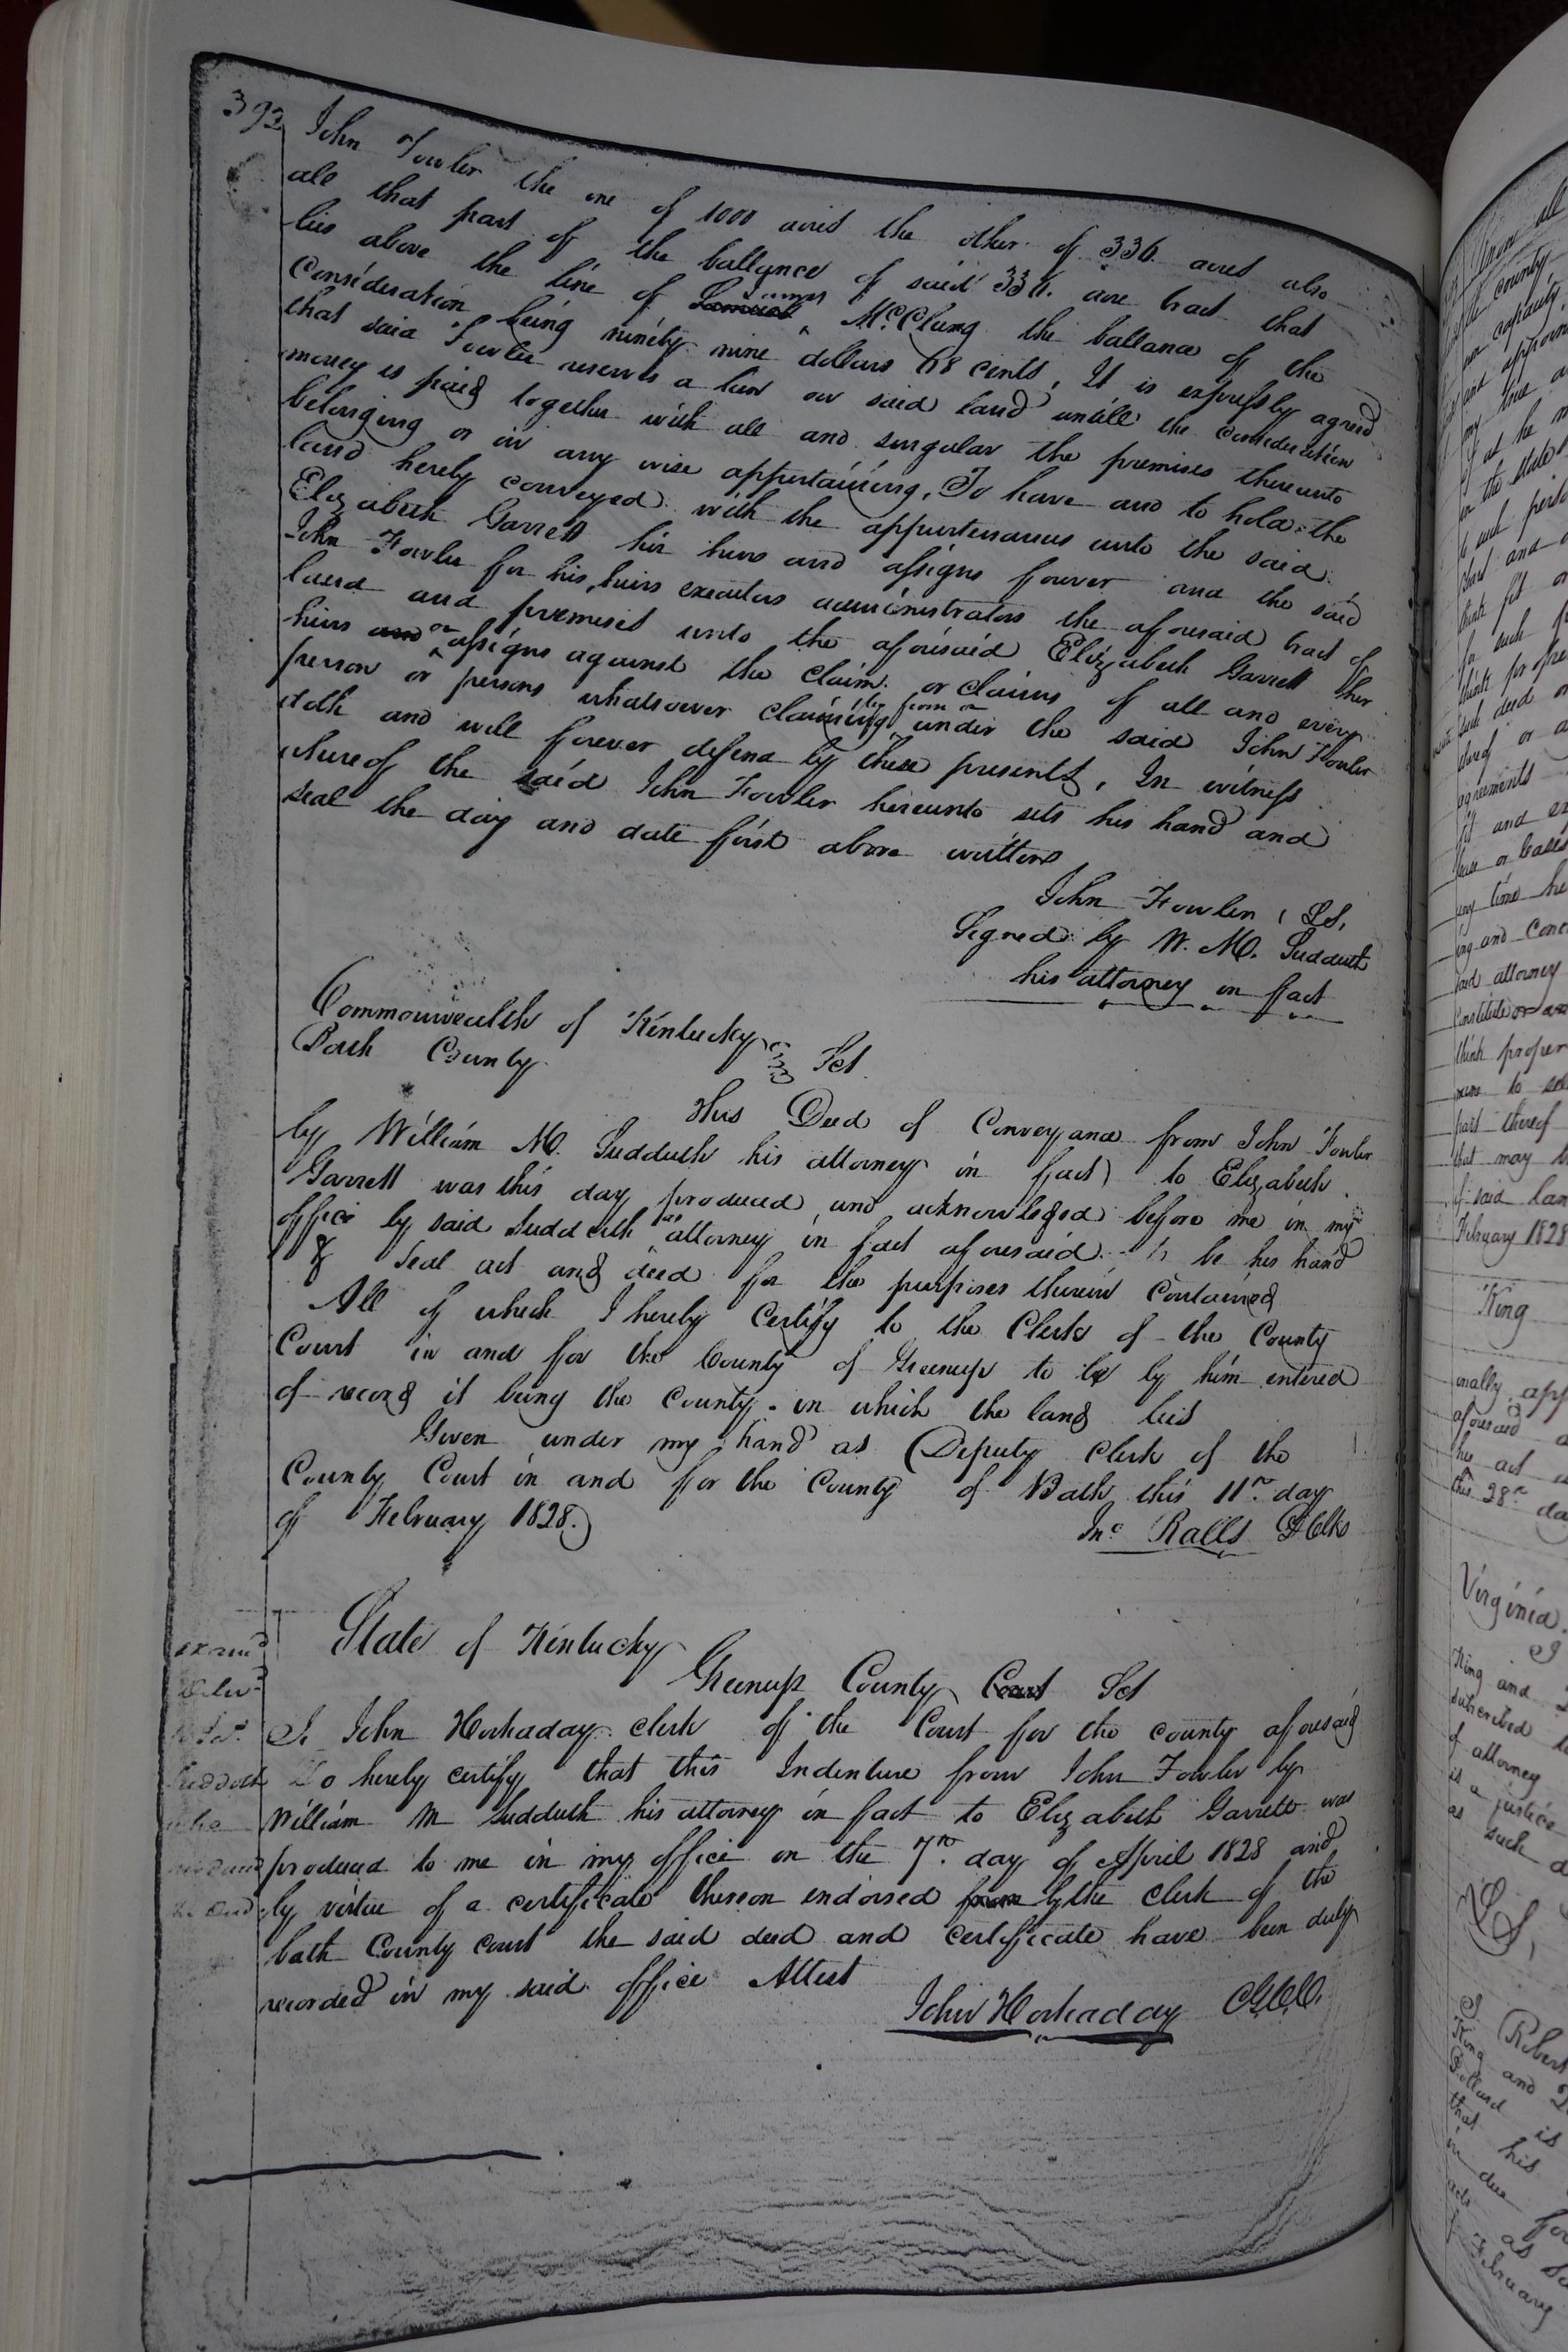 392
John Fowler the one of 1000 acres the other of 336 acres also
all that part of the ballance of said 336 acre tract that
lies above the line of Samuel James McClung the ballance of the
Consideration being ninety nine dollars 68 cents, It is expressly agreed
that said Fowler reserves a lien on said land untill the consideration
money is paid together with all and singular the premises thereunto
belonging or in any wise appertaining, To have and to hold the
land hereby conveyed with the appurtenances unto the said
Elizabeth Garrett her heirs and assigns forever and the said
John Fowler for his heirs executors administrators the aforesaid tract of
land and premises unto the aforesaid Elizabeth Garrett her
heirs and or assigns against the claim or claims of all and every
person or persons whatsoever claiming by from or under the said John Fowler
doth and will forever defend by these presents, In witness
whereof the said John Fowler hereunto sets his hand and
seal the day and date first above written
John Fowler LS,
Signed by W. M. Sudduth
his attorney in fact
Commonwealth of Kentucky
Bath County Sct
This Deed of Conveyance from John Fowler
by William M. Sudduth his attorney in fact) to Elizabeth
Garrett was this day produced and acknowledged before me in my
office by said Sudduth as attorney in fact aforesaid to be his hand
& Seal act and deed for the purposes therein contained
All of which I hereby Certify to the Clerk of the County
Court in and for the County of Greenup to be by him entered
of record it being the County in which the land lies
Given under my hand as Deputy Clerk of the
County Court in and for the County of Bath this 11th day
of February 1828.
Jno Ralls DClk
State of Kentucky
Greenup County Court Sct
I John Hockaday clerk of the Court for the county aforesaid
Do hereby certify that this Indenture from John Fowler by
William M Sudduth his attorney in fact to Elizabeth Garrett was
produced to me in my office on the 7th day of April 1828 and
by virtue of a certificate thereon endorsed from by the Clerk of the
bath County court the said deed and certificate have been duly
recorded in my said office Attest
John Hockaday CGCC.
exam'd
Sudduth
King
Virginia.
King and
LS,
I Robert
King and
that his
February 1828
February